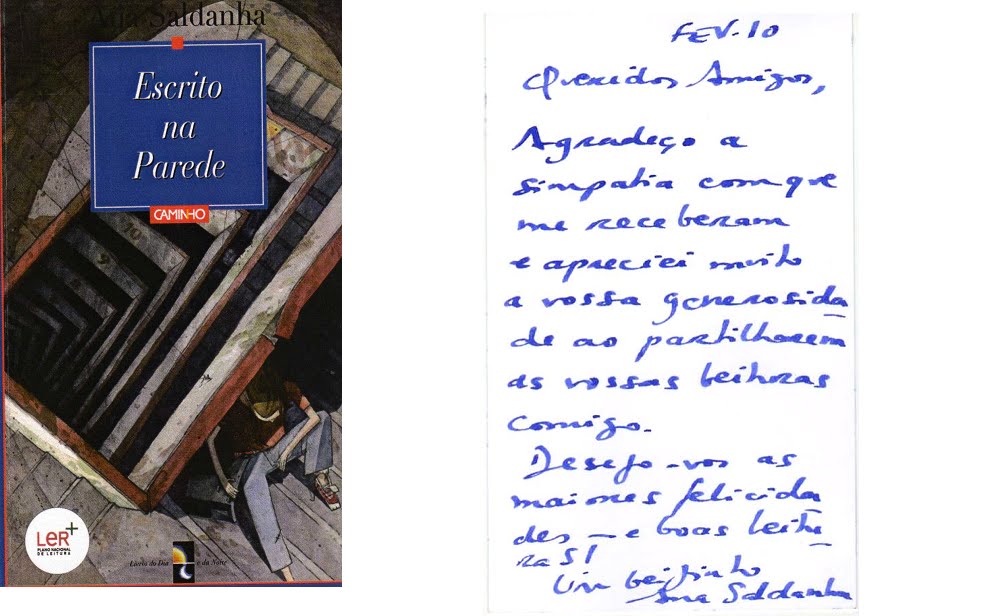 Ana Saldanha
Escrito
na
Parede
CAMINHO
10
9
LeR+
PLANO NACIONAL
DE LEITURA
Livros do Dia e da Noite
FEV. 10
Queridos Amigos,
Agradeço a
simpatia com que
me receberam
e apreciei muito
a vossa generosida
de ao partilharem
as vossas leituras
comigo.
Desejo-vos as
maiores felicida
des — e boas leitu
ras!
Um beijinho
Ana Saldanha